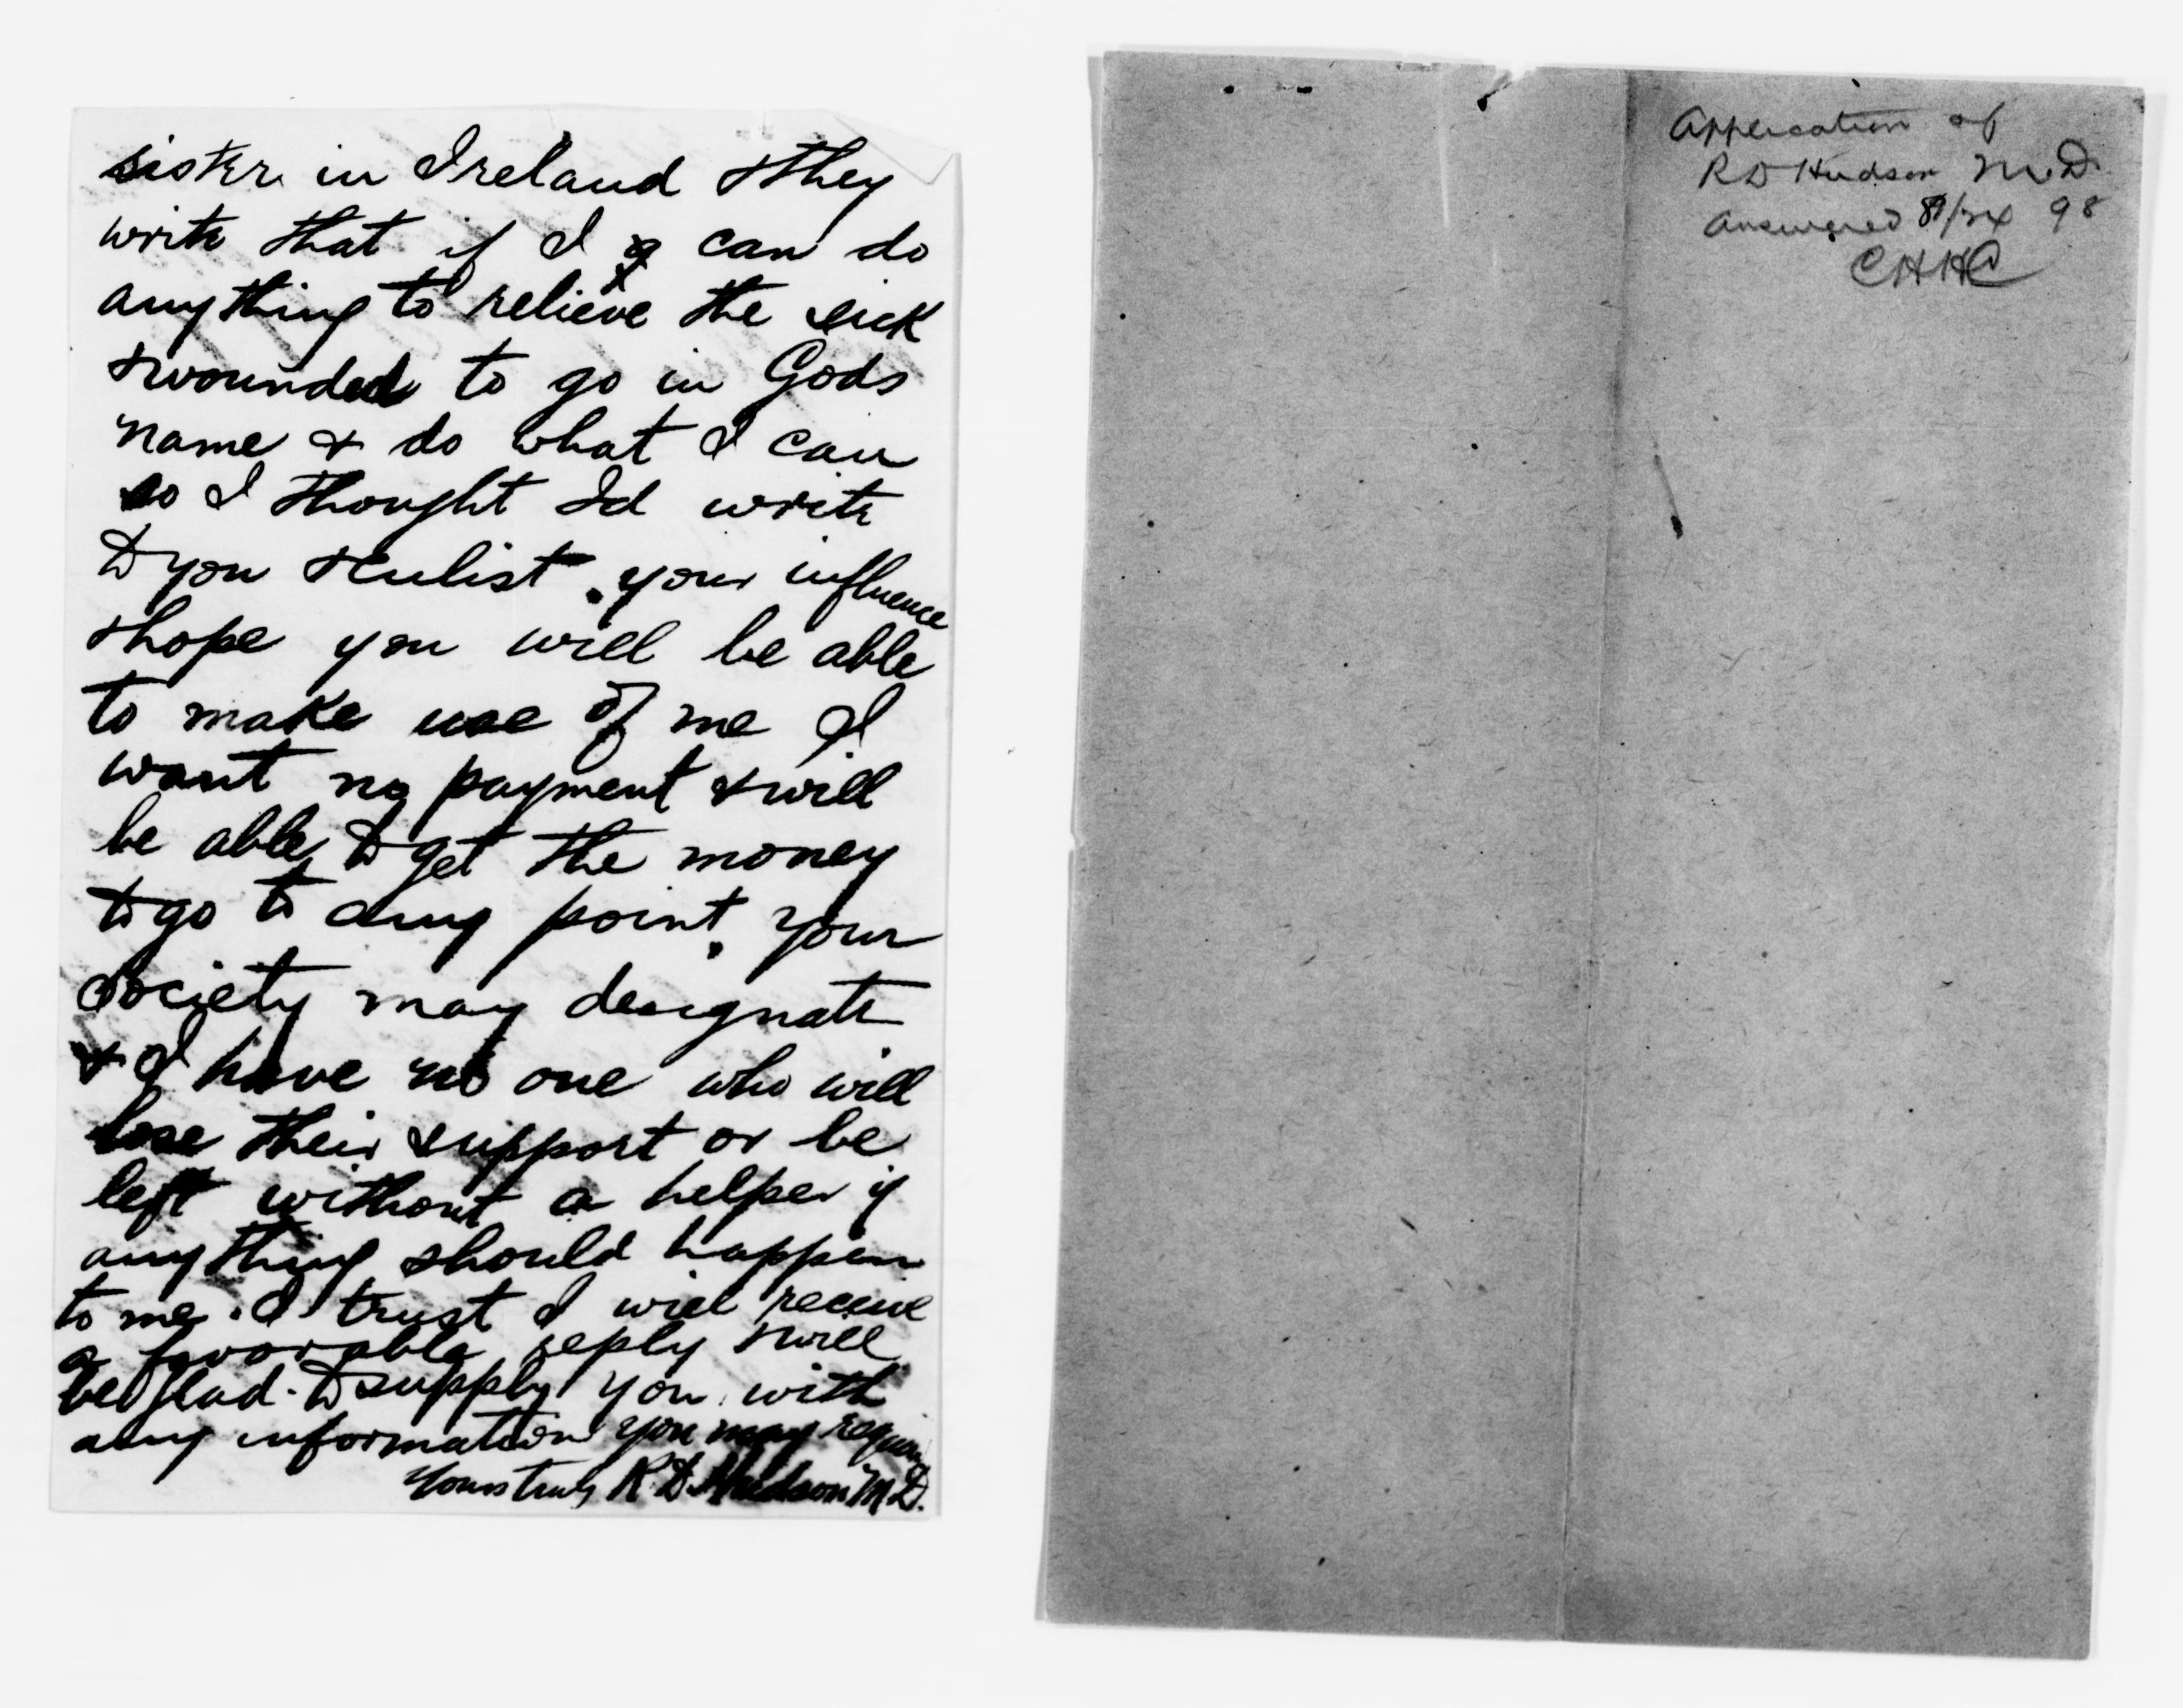 sister in Ireland & they
write that if I can do
anything to relieve the sick
& wounded to go in Gods
name & do what I can
so I thought Id write
to you & enlist your influence
& hope you will be able
to make use of me I
want no payment & will
be able to get the money
to go to any point your
society may designate
& I have no one who will
lose their support or be
left without a helper if
anything should happen
to me. I trust I will receive
a favorable reply & will
be glad to supply you with
any information you may require
Yours truly R.D. Hudson M.D.
Application of
R D Hudson M.D.
Answered 98
CHHC